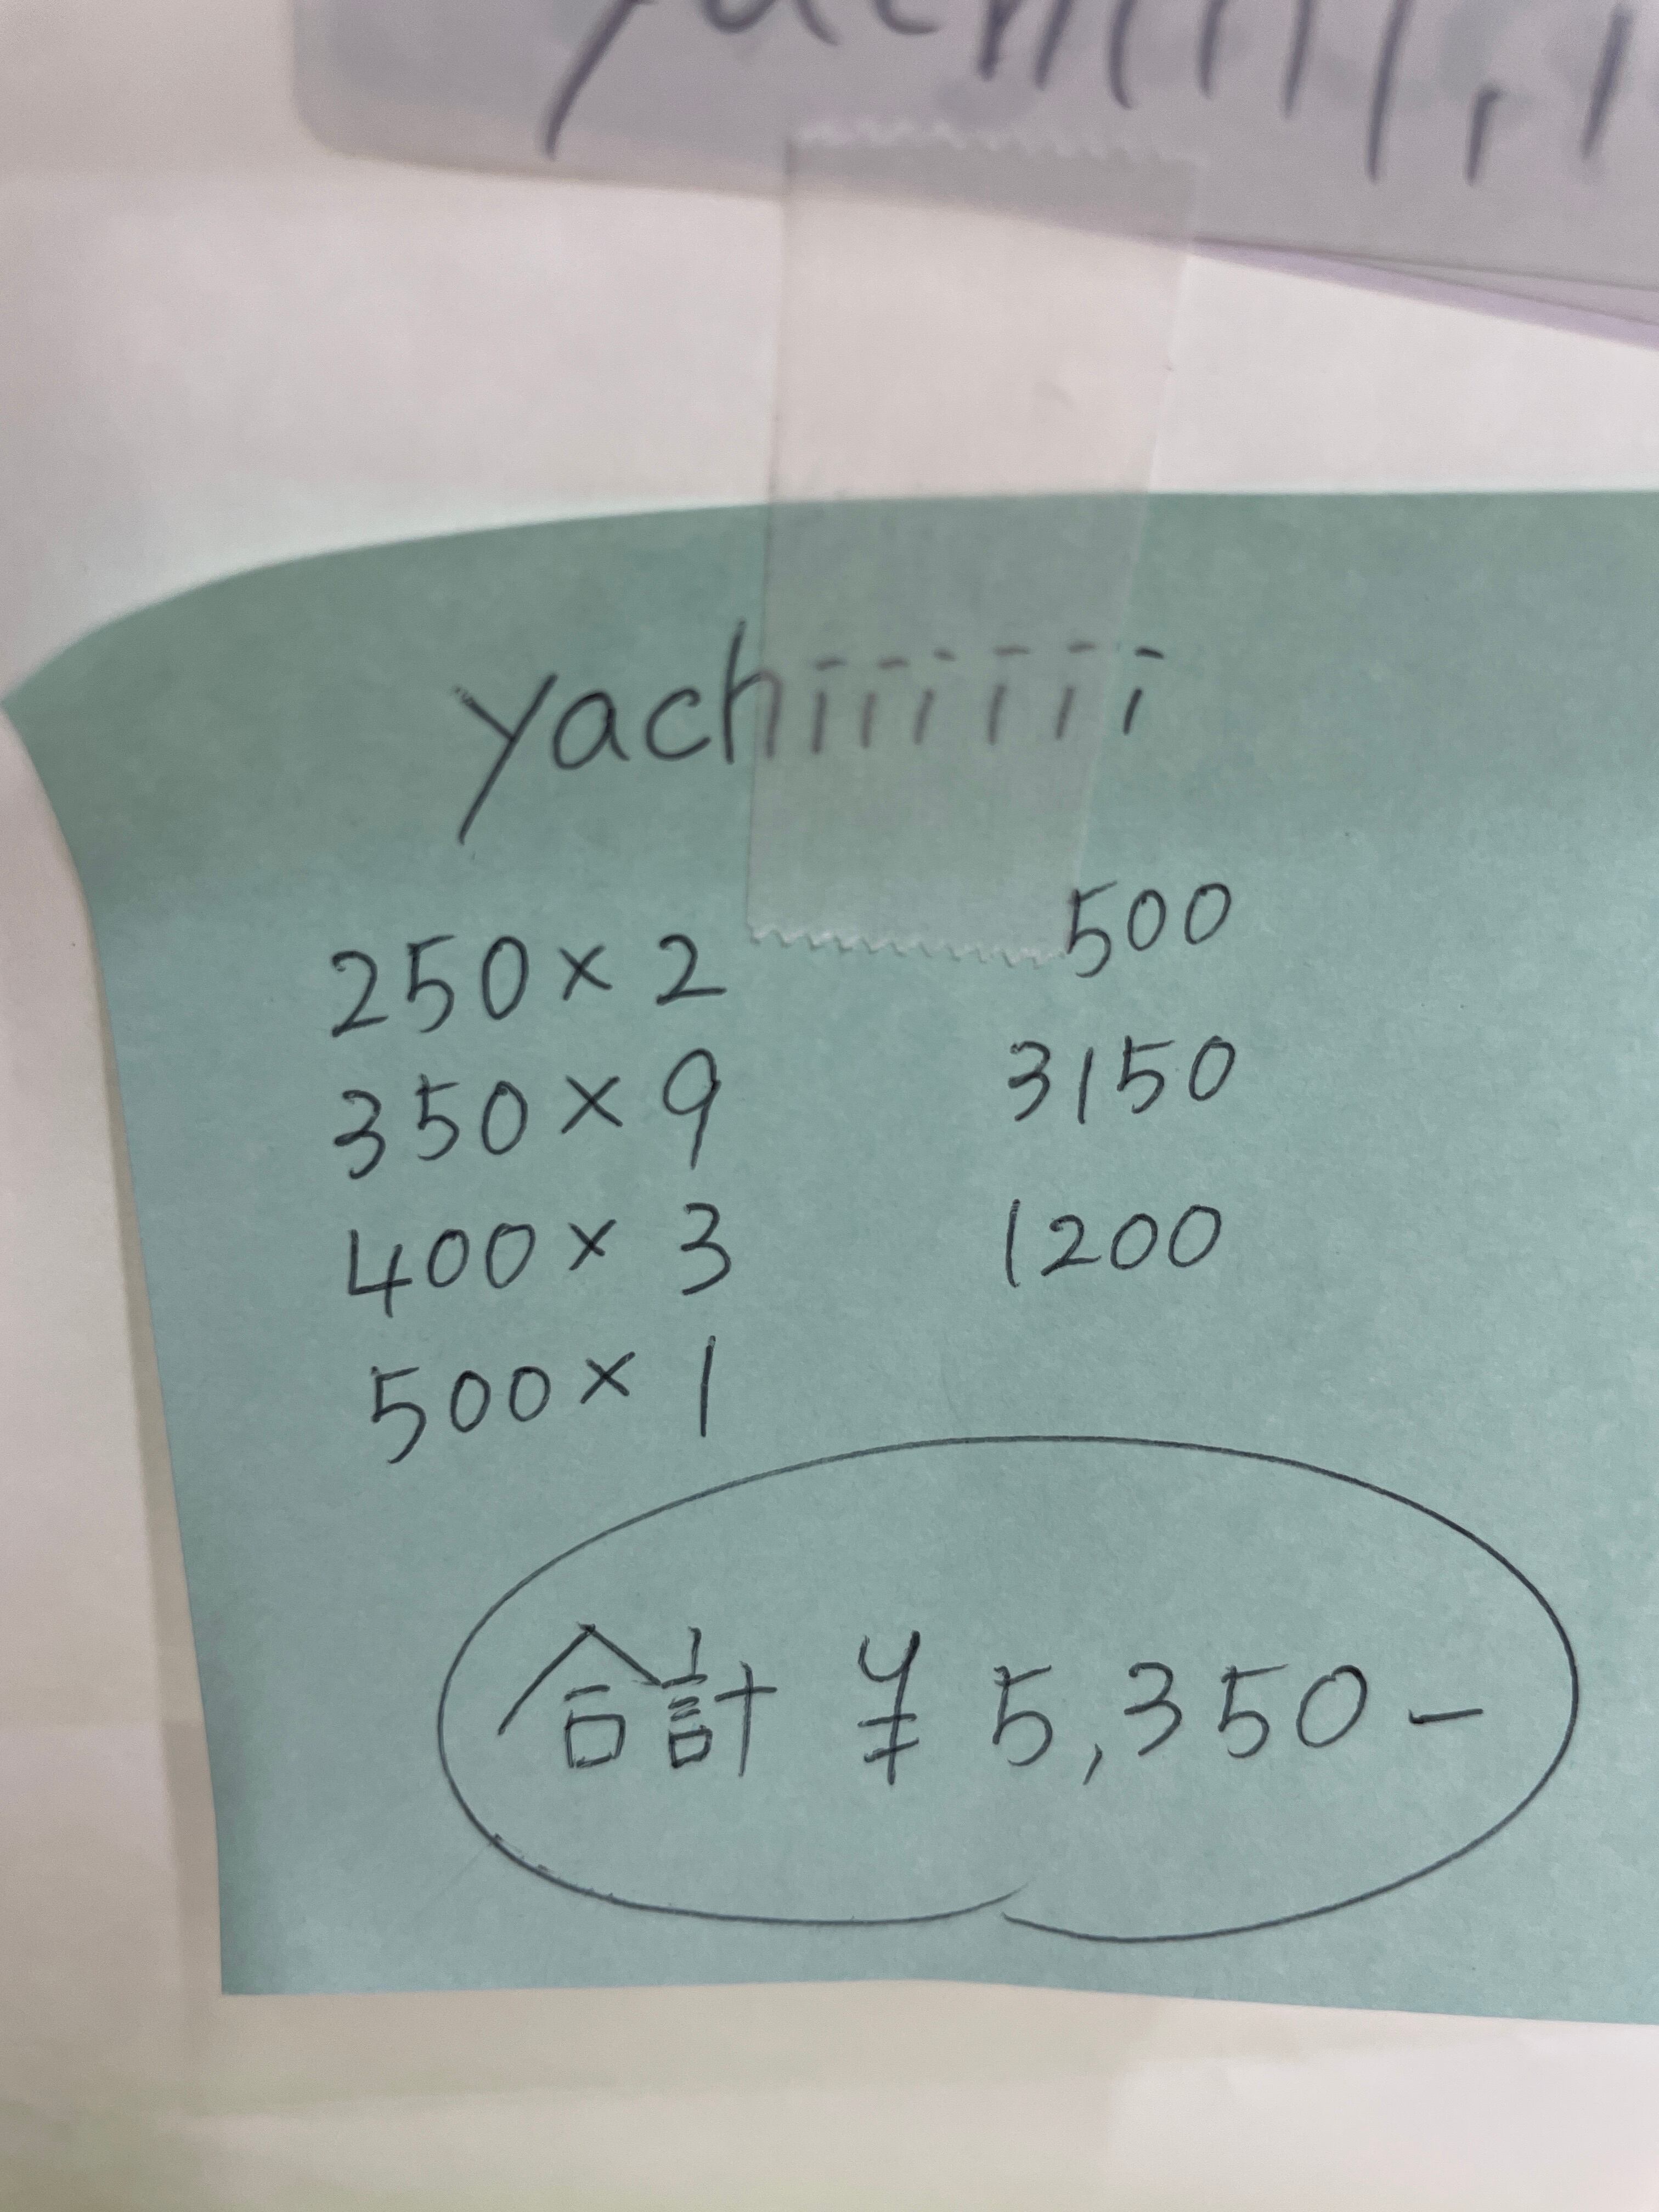 yachiiiiii
250×2 500
350×9 3150
400×3 1200
500×1
合計 ¥5,350-